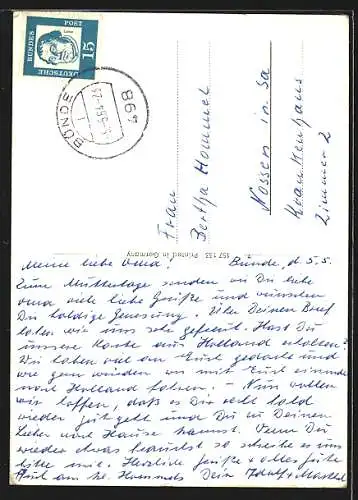 DEUTSCHE BUNDESPOST
15
498
BÜNDE
Frau
Bertha Hommel
Nossen in Sa
Krankenhaus
Zimmer 2
157 133 Printed in Germany
Meine liebe Oma! Bünde, d. 5.5.
Zum Muttertage senden wir Dir liebe
Oma viele liebe Grüße und wünschen
Dir baldige Genesung. Über Deinen Brief
haben wir uns sehr gefreut. Hast Du
unsere Karte aus Holland erhalten?
Wir haben viel an Euch gedacht und
wie gern würden wir mit Euch einmal
nach Holland fahren. – Nun wollen
wir hoffen, daß es Dir recht bald
wieder gut geht und Du zu Deinen
Lieben nach Hause kannst. Wenn Du
wieder etwas brauchst so schreibe es uns
bitte mit. Herzliche Grüße + alles Gute
Dein